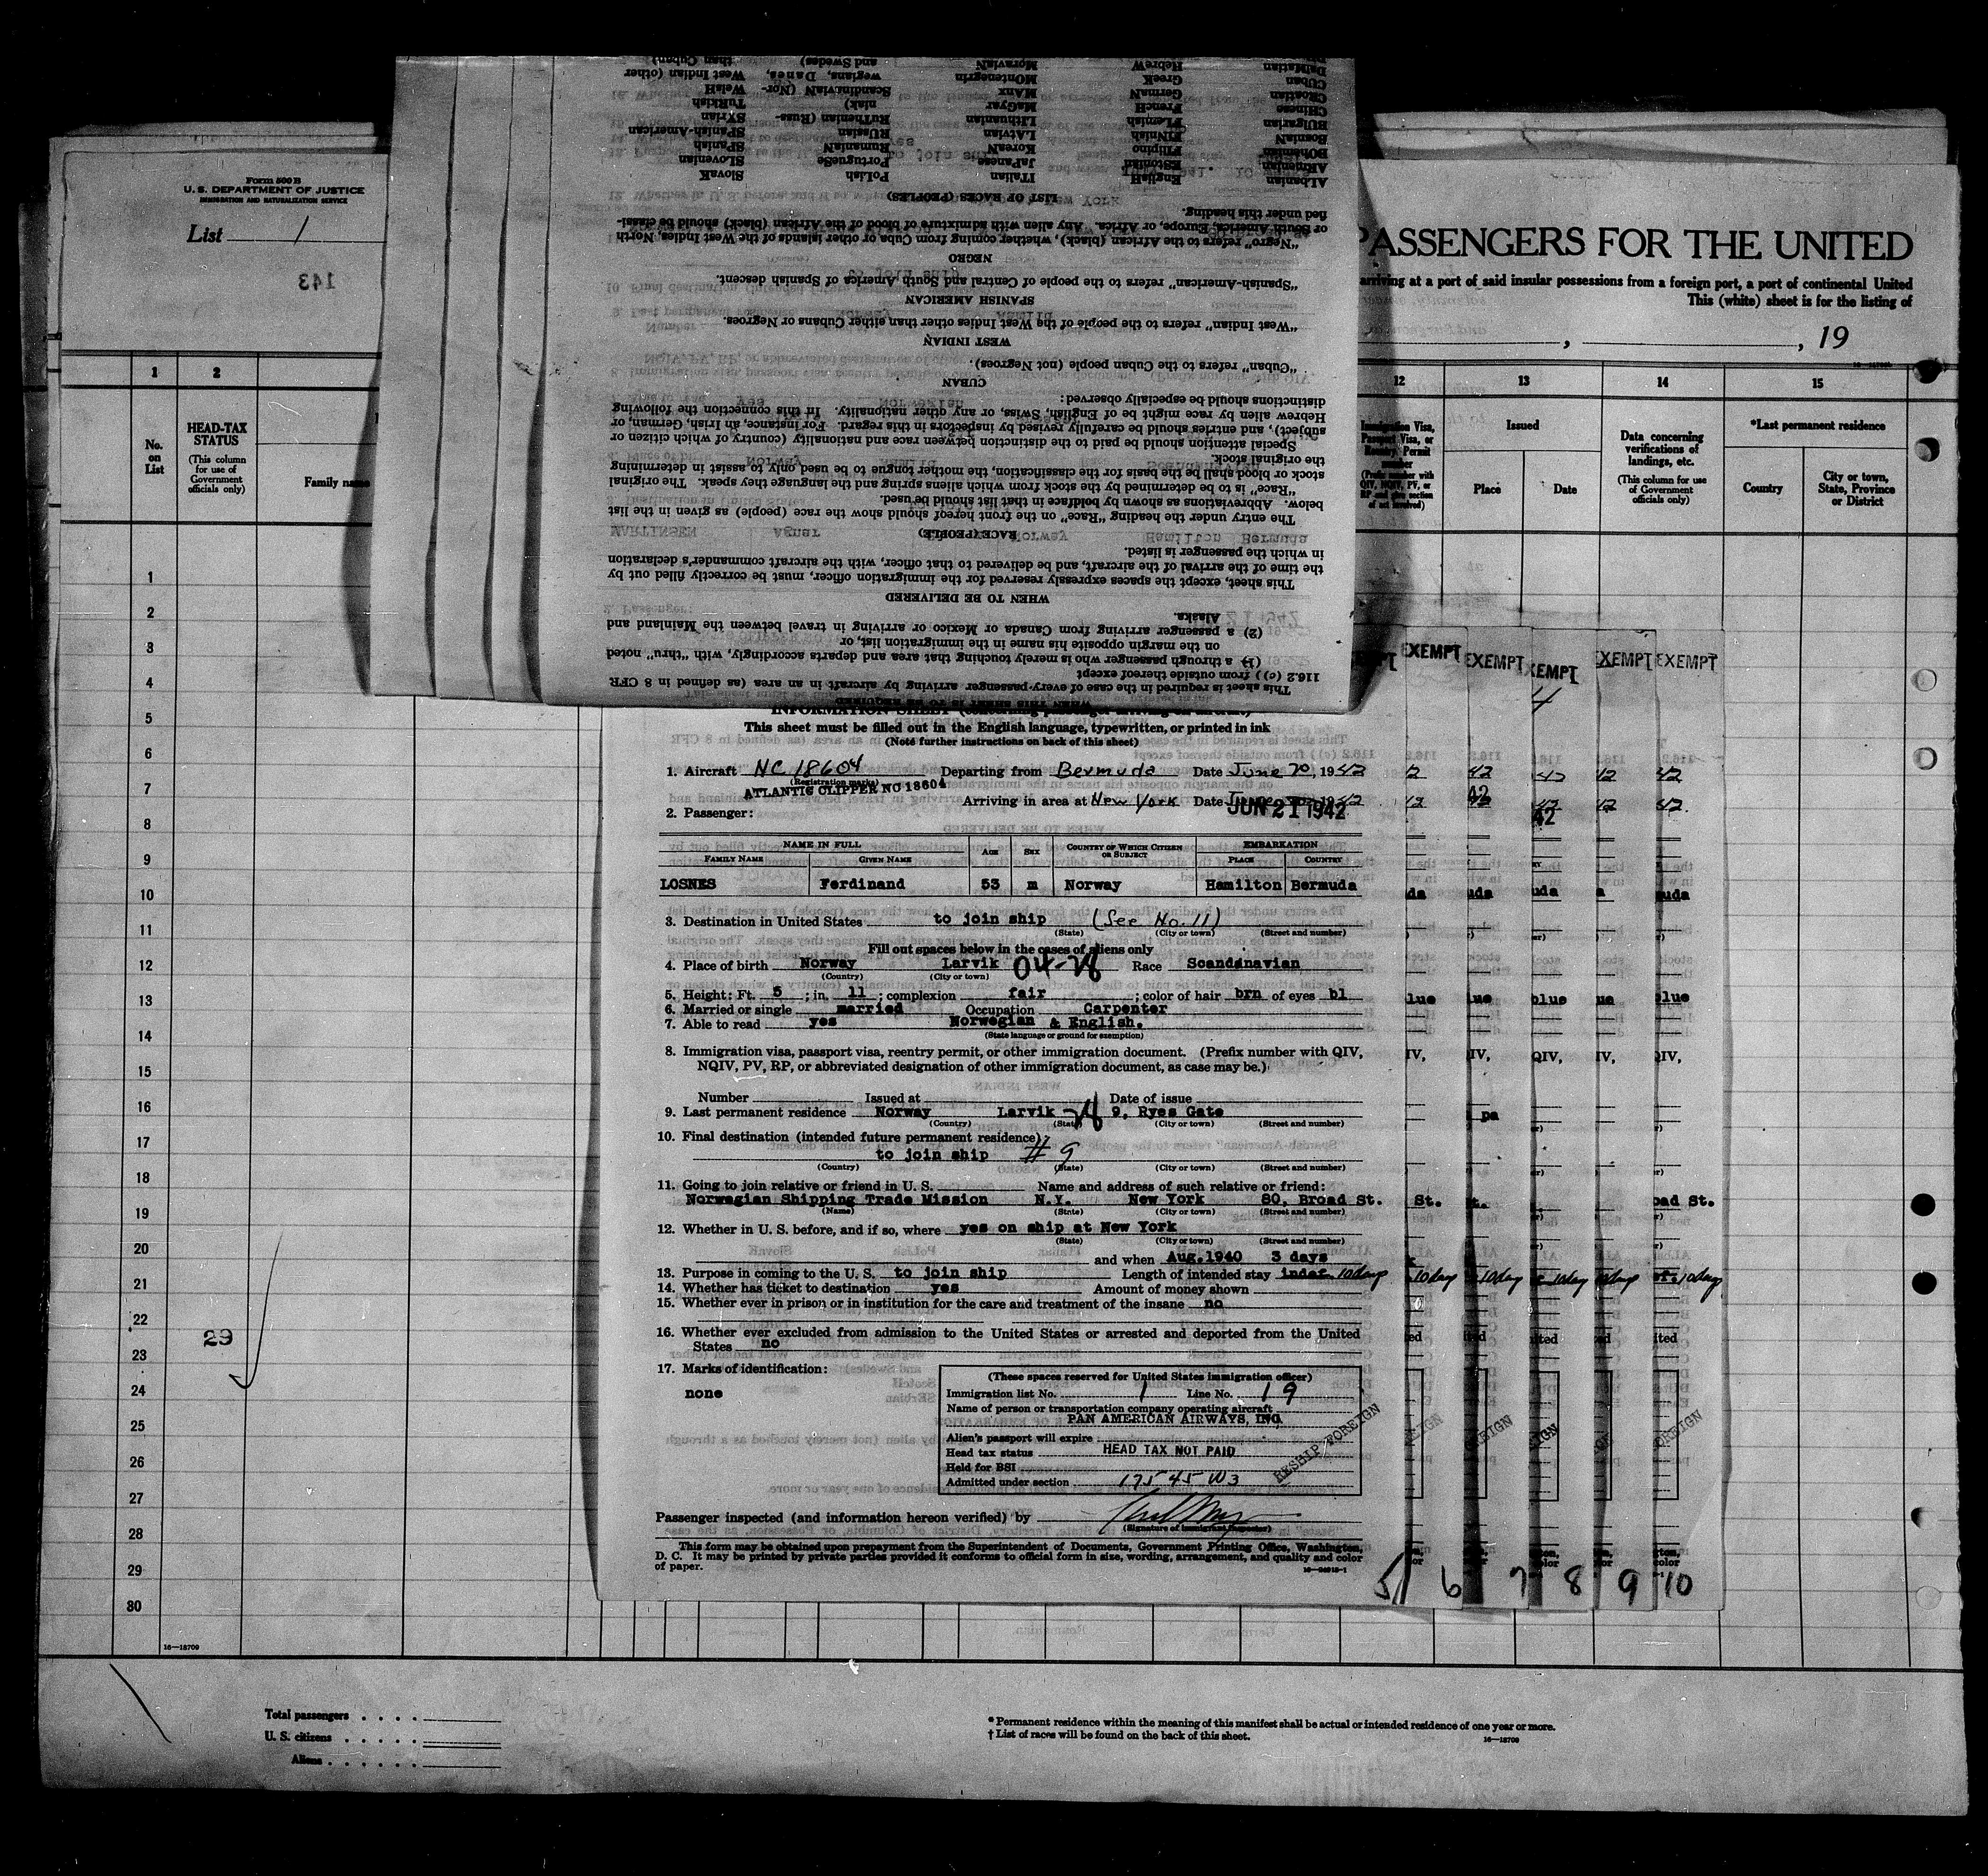 Form 500 B
U. S. DEPARTMENT OF JUSTICE
IMMIGRATION AND NATURALIZATION SERVICE
List 1
143
PASSENGERS FOR THE UNITED
arriving at a port of said insular possessions from a foreign port, a port of continental United
This (white) sheet is for the listing of
, , 19
1 2
No. on List
HEAD-TAX STATUS
(This column for use of Government officials only)
Family name
12 13 14 15
Immigration Visa, Passport Visa, or Reentry Permit number
(Prefix number with QIV, NQIV, PV, or RP and give section of act involved)
Issued
Place Date
Data concerning verifications of landings, etc.
(This column for use of Government officials only)
*Last permanent residence
Country
City or town, State, Province or District
This sheet is required in the case of every passenger arriving by aircraft in an area (as defined in 8 CFR
116.2 (c) ) from outside thereof except
(1) a through passenger who is merely touching that area and departs accordingly, with "thru" noted
on the margin opposite his name in the immigration list, or
(2) a passenger arriving from Canada or Mexico or arriving in travel between the Mainland and
Alaska.
WHEN TO BE DELIVERED
This sheet, except the spaces expressly reserved for the immigration officer, must be correctly filled out by
the time of the arrival of the aircraft, and be delivered to that officer, with the aircraft commander's declaration
in which the passenger is listed.
RACE (PEOPLE)
The entry under the heading "Race" on the front hereof should show the race (people) as given in the list
below. Abbreviations as shown by boldface in that list should be used.
"Race" is to be determined by the stock from which aliens spring and the language they speak. The original
stock or blood shall be the basis for the classification, the mother tongue to be used only to assist in determining
the original stock.
Special attention should be paid to the distinction between race and nationality (country of which citizen or
subject), and entries should be carefully revised by inspectors in this regard. For instance, an Irish, German, or
Hebrew alien by race might be of English, Swiss, or any other nationality. In this connection the following
distinctions should be especially observed:
CUBAN
"Cuban" refers to the Cuban people (not Negroes).
WEST INDIAN
"West Indian" refers to the people of the West Indies other than either Cubans or Negroes.
SPANISH AMERICAN
"Spanish-American" refers to the people of Central and South America of Spanish descent.
NEGRO
"Negro" refers to the African (black), whether coming from Cuba or other islands of the West Indies, North
or South America, Europe, or Africa. Any alien with admixture of blood of the African (black) should be classi-
fied under this heading.
LIST OF RACES (PEOPLES)
ALbanian EnglisH ITalian PoLish SlovaK
ARmenian EStonian JaPanese PortugueSe SLovenian
BOhemian Filipino KoreaN RumaniaN SPanish
BosniaN FINnish LAtvian RUssian SPanish-American
BUlgarian FLemish LIthuanian RuThenian (Russ- SYrian
CHinese French MaGyar niak) TuRkish
CRoatian GermaN MAnx ScandinaviaN (Nor- WelsH
CUban GreeK MOntenegrin wegians, Danes, West Indian (other
DalMatian HebreW MoraviaN and Swedes) than Cuban)
This sheet must be filled out in the English language, typewritten, or printed in ink
(Note further instructions on back of this sheet)
1. Aircraft NC 18604 Departing from Bermuda Date June 20, 1942
(Registration marks)
ATLANTIC CLIPPER NC 18604
Arriving in area at New York Date June 1942
JUN 21 1942
2. Passenger:
NAME IN FULL AGE SEX COUNTRY OF WHICH CITIZEN OR SUBJECT EMBARKATION
FAMILY NAME GIVEN NAME PLACE COUNTRY
LOSNES Ferdinand 53 m Norway Hamilton Bermuda
3. Destination in United States to join ship (See No. 11)
(State) (City or town) (Street and number)
Fill out spaces below in the cases of aliens only
4. Place of birth Norway Larvik 04-28 Race Scandinavian
(Country) (City or town)
5. Height: Ft. 5 ; in. 11 ; complexion fair ; color of hair brn of eyes bl
6. Married or single married Occupation Carpenter
7. Able to read yes Norwegian & English.
(State language or ground for exemption)
8. Immigration visa, passport visa, reentry permit, or other immigration document. (Prefix number with QIV,
NQIV, PV, RP, or abbreviated designation of other immigration document, as case may be.)
Number Issued at Date of issue
9. Last permanent residence Norway Larvik 28 9, Ryes Gate
(Country) (State) (City or town) (Street and number)
10. Final destination (intended future permanent residence)
to join ship #9
(Country) (State) (City or town) (Street and number)
11. Going to join relative or friend in U. S. Name and address of such relative or friend:
Norwegian Shipping Trade Mission N.Y. New York 80, Broad St.
(Name) (State) (City or town) (Street and number)
12. Whether in U. S. before, and if so, where yes on ship at New York
(State) (City or town) (Street and number)
and when Aug. 1940 3 days
13. Purpose in coming to the U. S. to join ship Length of intended stay indef 10 days
14. Whether has ticket to destination yes Amount of money shown
15. Whether ever in prison or in institution for the care and treatment of the insane no
16. Whether ever excluded from admission to the United States or arrested and deported from the United
States no
17. Marks of identification:
none
(These spaces reserved for United States immigration officer)
Immigration list No. 1 Line No. 19
Name of person or transportation company operating aircraft
PAN AMERICAN AIRWAYS, INC.
Alien's passport will expire
Head tax status HEAD TAX NOT PAID
Held for BSI
Admitted under section 175 45 W3
RESHIP FOREIGN
Passenger inspected (and information hereon verified) by
(Signature of immigrant inspector)
This form may be obtained upon prepayment from the Superintendent of Documents, Government Printing Office, Washington,
D. C. It may be printed by private parties provided it conforms to official form in size, wording, arrangement, and quality and color
of paper.
EXEMPT EXEMPT EXEMPT EXEMPT EXEMPT
5 6 7 8 9 10
1
2
3
4
5
6
7
8
9
10
11
12
13
14
15
16
17
18
19
20
21
22
29
23
24
25
26
27
28
29
30
16—18709
Total passengers . . . .
U. S. citizens . . . . .
Aliens . . . . . .
* Permanent residence within the meaning of this manifest shall be actual or intended residence of one year or more.
† List of races will be found on the back of this sheet.
16—18709